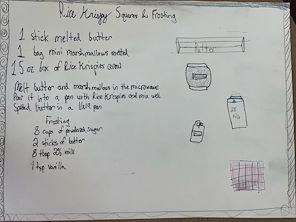 Rice Krispy Squares & Frosting
1 stick melted butter
1 bag mini marshmallows melted
1.5 oz box of Rice Krispies cereal
Melt butter and marshmallows in the microwave
Pour it into a pan with Rice Krispies and mix well
Spread butter in a pan
Frosting
8 cups of powdered sugar
2 sticks of butter
8 tbsp 2% milk
1 tsp vanilla
butter